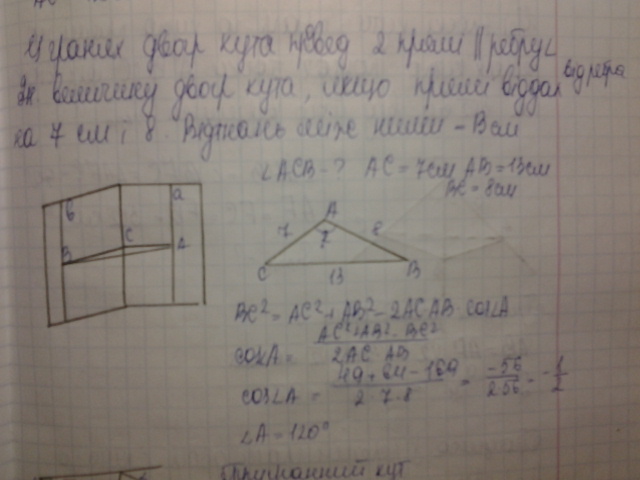 У гранях двогр кута провед 2 прямі || ребру.
Зн. величину двогр кута, якщо прямі віддал від ребра
на 7 см і 8. Відстань між ними – 13 см
∠ACB - ? AC = 7см AB = 13см
BC = 8см
в
a
B
C
A
A
7
?
8
C
13
B
BC² = AC² + AB² - 2AC AB cos∠A
cos∠A = (AC² + AB² - BC²) / (2AC AB)
cos∠A = (49 + 64 - 169) / (2·7·8) = -56 / (2·56) = -1/2
∠A = 120°
кут